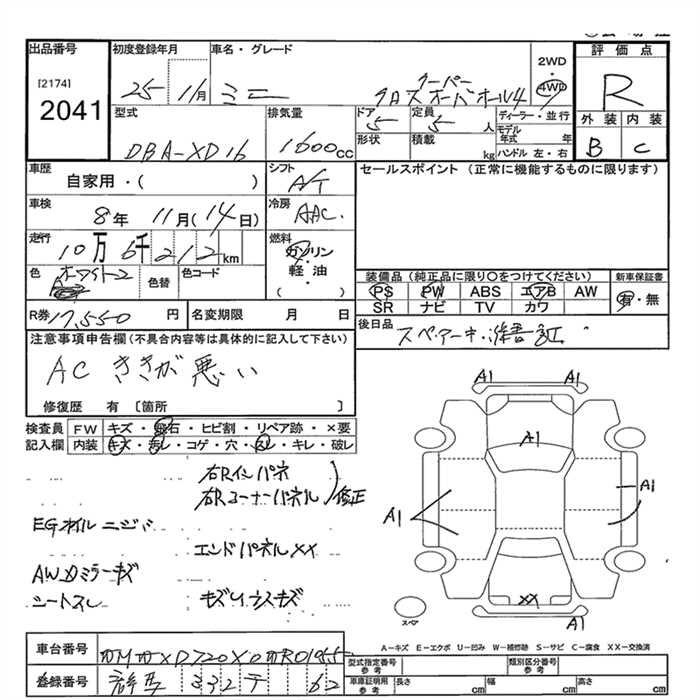 出品番号 初度登録年月 車名・グレード 2WD・4WD 評価点
[2174]
2041
25 11月 ミニ クーパー
クロスオーバーオール4
R
型式 排気量 ドア 定員 ディーラー・並行 外装 内装
DBA-XD16 1600cc 5 5人 モデル年式 年
形状 積載 kg ハンドル 左・右 B C
車歴 シフト セールスポイント (正常に機能するものに限ります)
自家用・( ) A/T
車検 8年 11月(14日) 冷房 AAC.
走行 10万6千212km 燃料 ガソリン・軽油・( )
色 ホワイト2 色替 色コード
装備品(純正品に限り○をつけてください) 新車保証書
PS PW ABS エアB AW 有・無
SR ナビ TV カワ
R券 17,550円 名変期限 月 日
後日品 スペアーキー
注意事項申告欄(不具合内容等は具体的に記入して下さい)
AC ききが悪い
修復歴 有 [箇所 ]
検査員記入欄 FW キズ・飛石・ヒビ割・リペア跡・×要
内装 キズ・汚レ・コゲ・穴・スレ・キレ・破レ
右Rインパネ
右Rコーナーパネル 修正
EGオイルニジミ
エンドパネルXX
AWカミラーキズ
シートスレ
A1 A1
A1
A1
A1
XX
スペア
A-キズ E-エクボ U-凹み W-補修跡 S-サビ C-腐食 XX-交換済
車台番号
型式指定番号 参考 類別区分番号 参考
登録番号
車庫証明用 参考 長さ cm 幅 cm 高さ cm